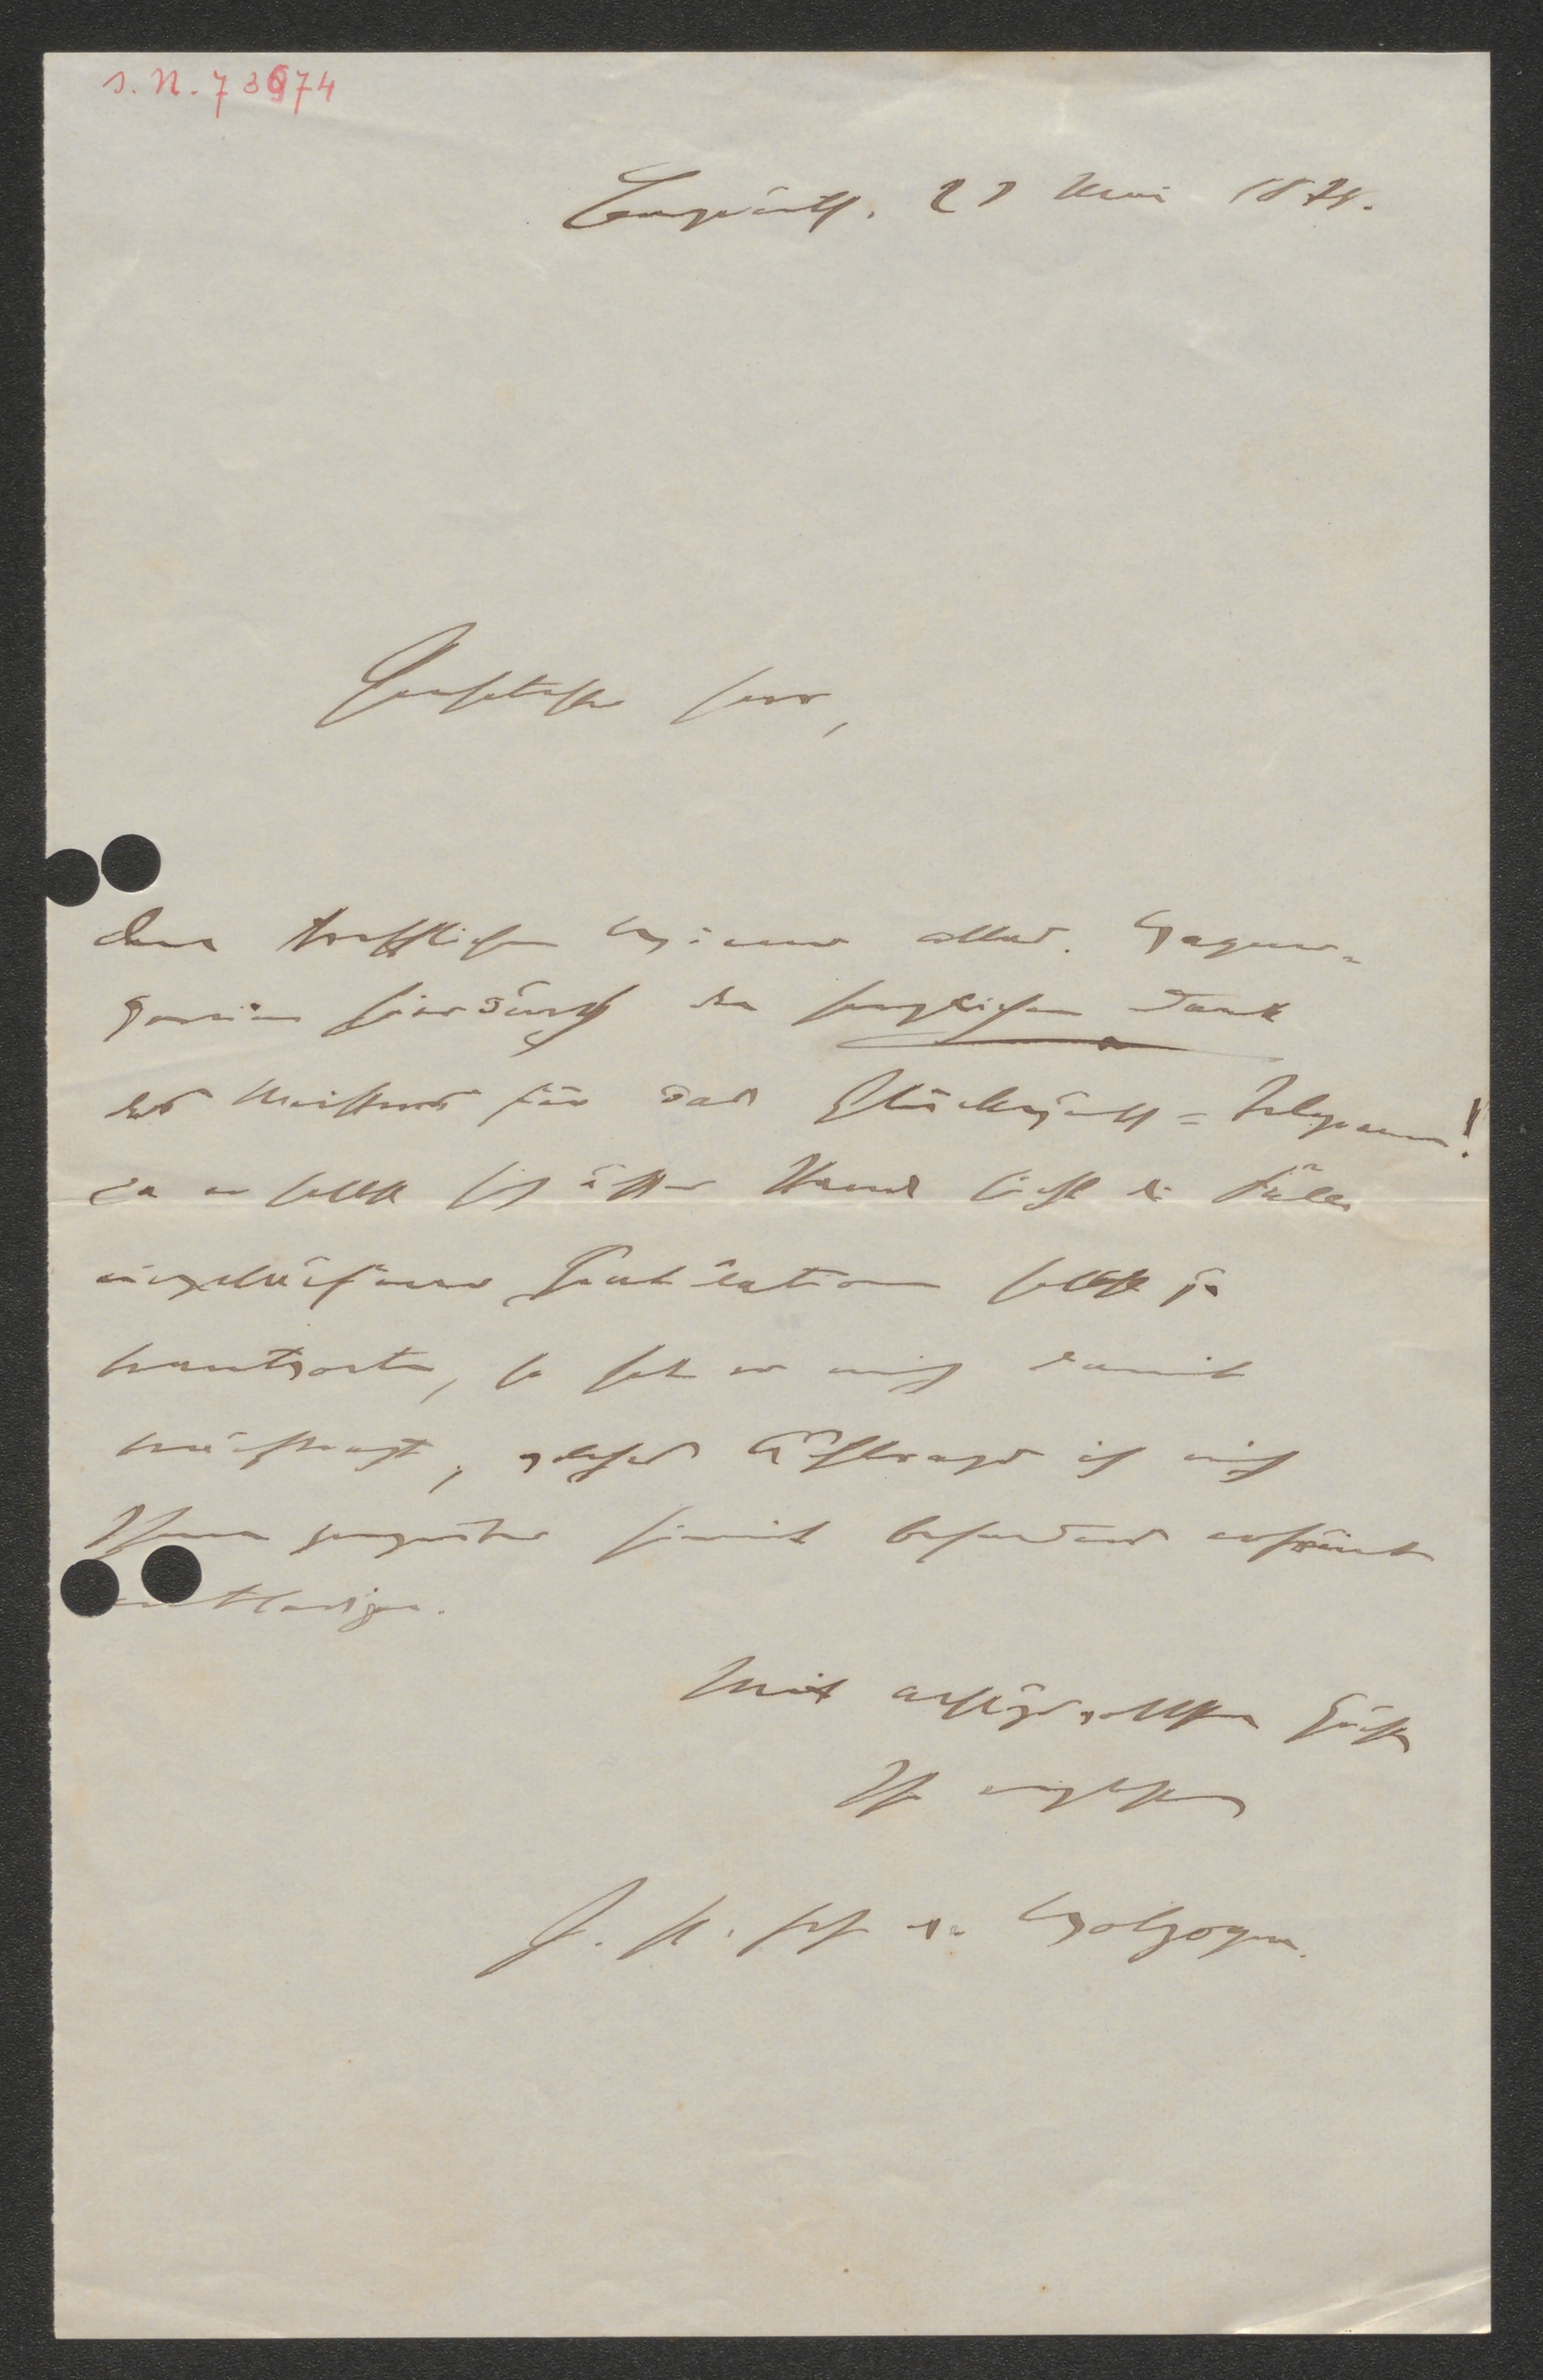 s. N. 73974
Bayreuth. 27 Mai 1878.
Geehrtester Herr,
Dem trefflichen Wiener akad. Wagner-
verein hierdurch den herzlichen Dank
des Meisters für das Glückwunsch-Telegramm!
Da er selbst sich außer Stand sieht die Fülle
eingelaufener Gratulationen selbst zu
beantworten, so hat er mich damit
beauftragt, welches Auftrages ich mich
Ihnen gegenüber hiermit besonders erfreut
entledige.
Mit achtungsvollstem Gruß
Ihr ergebenster
H. P. Frh v. Wolzogen.